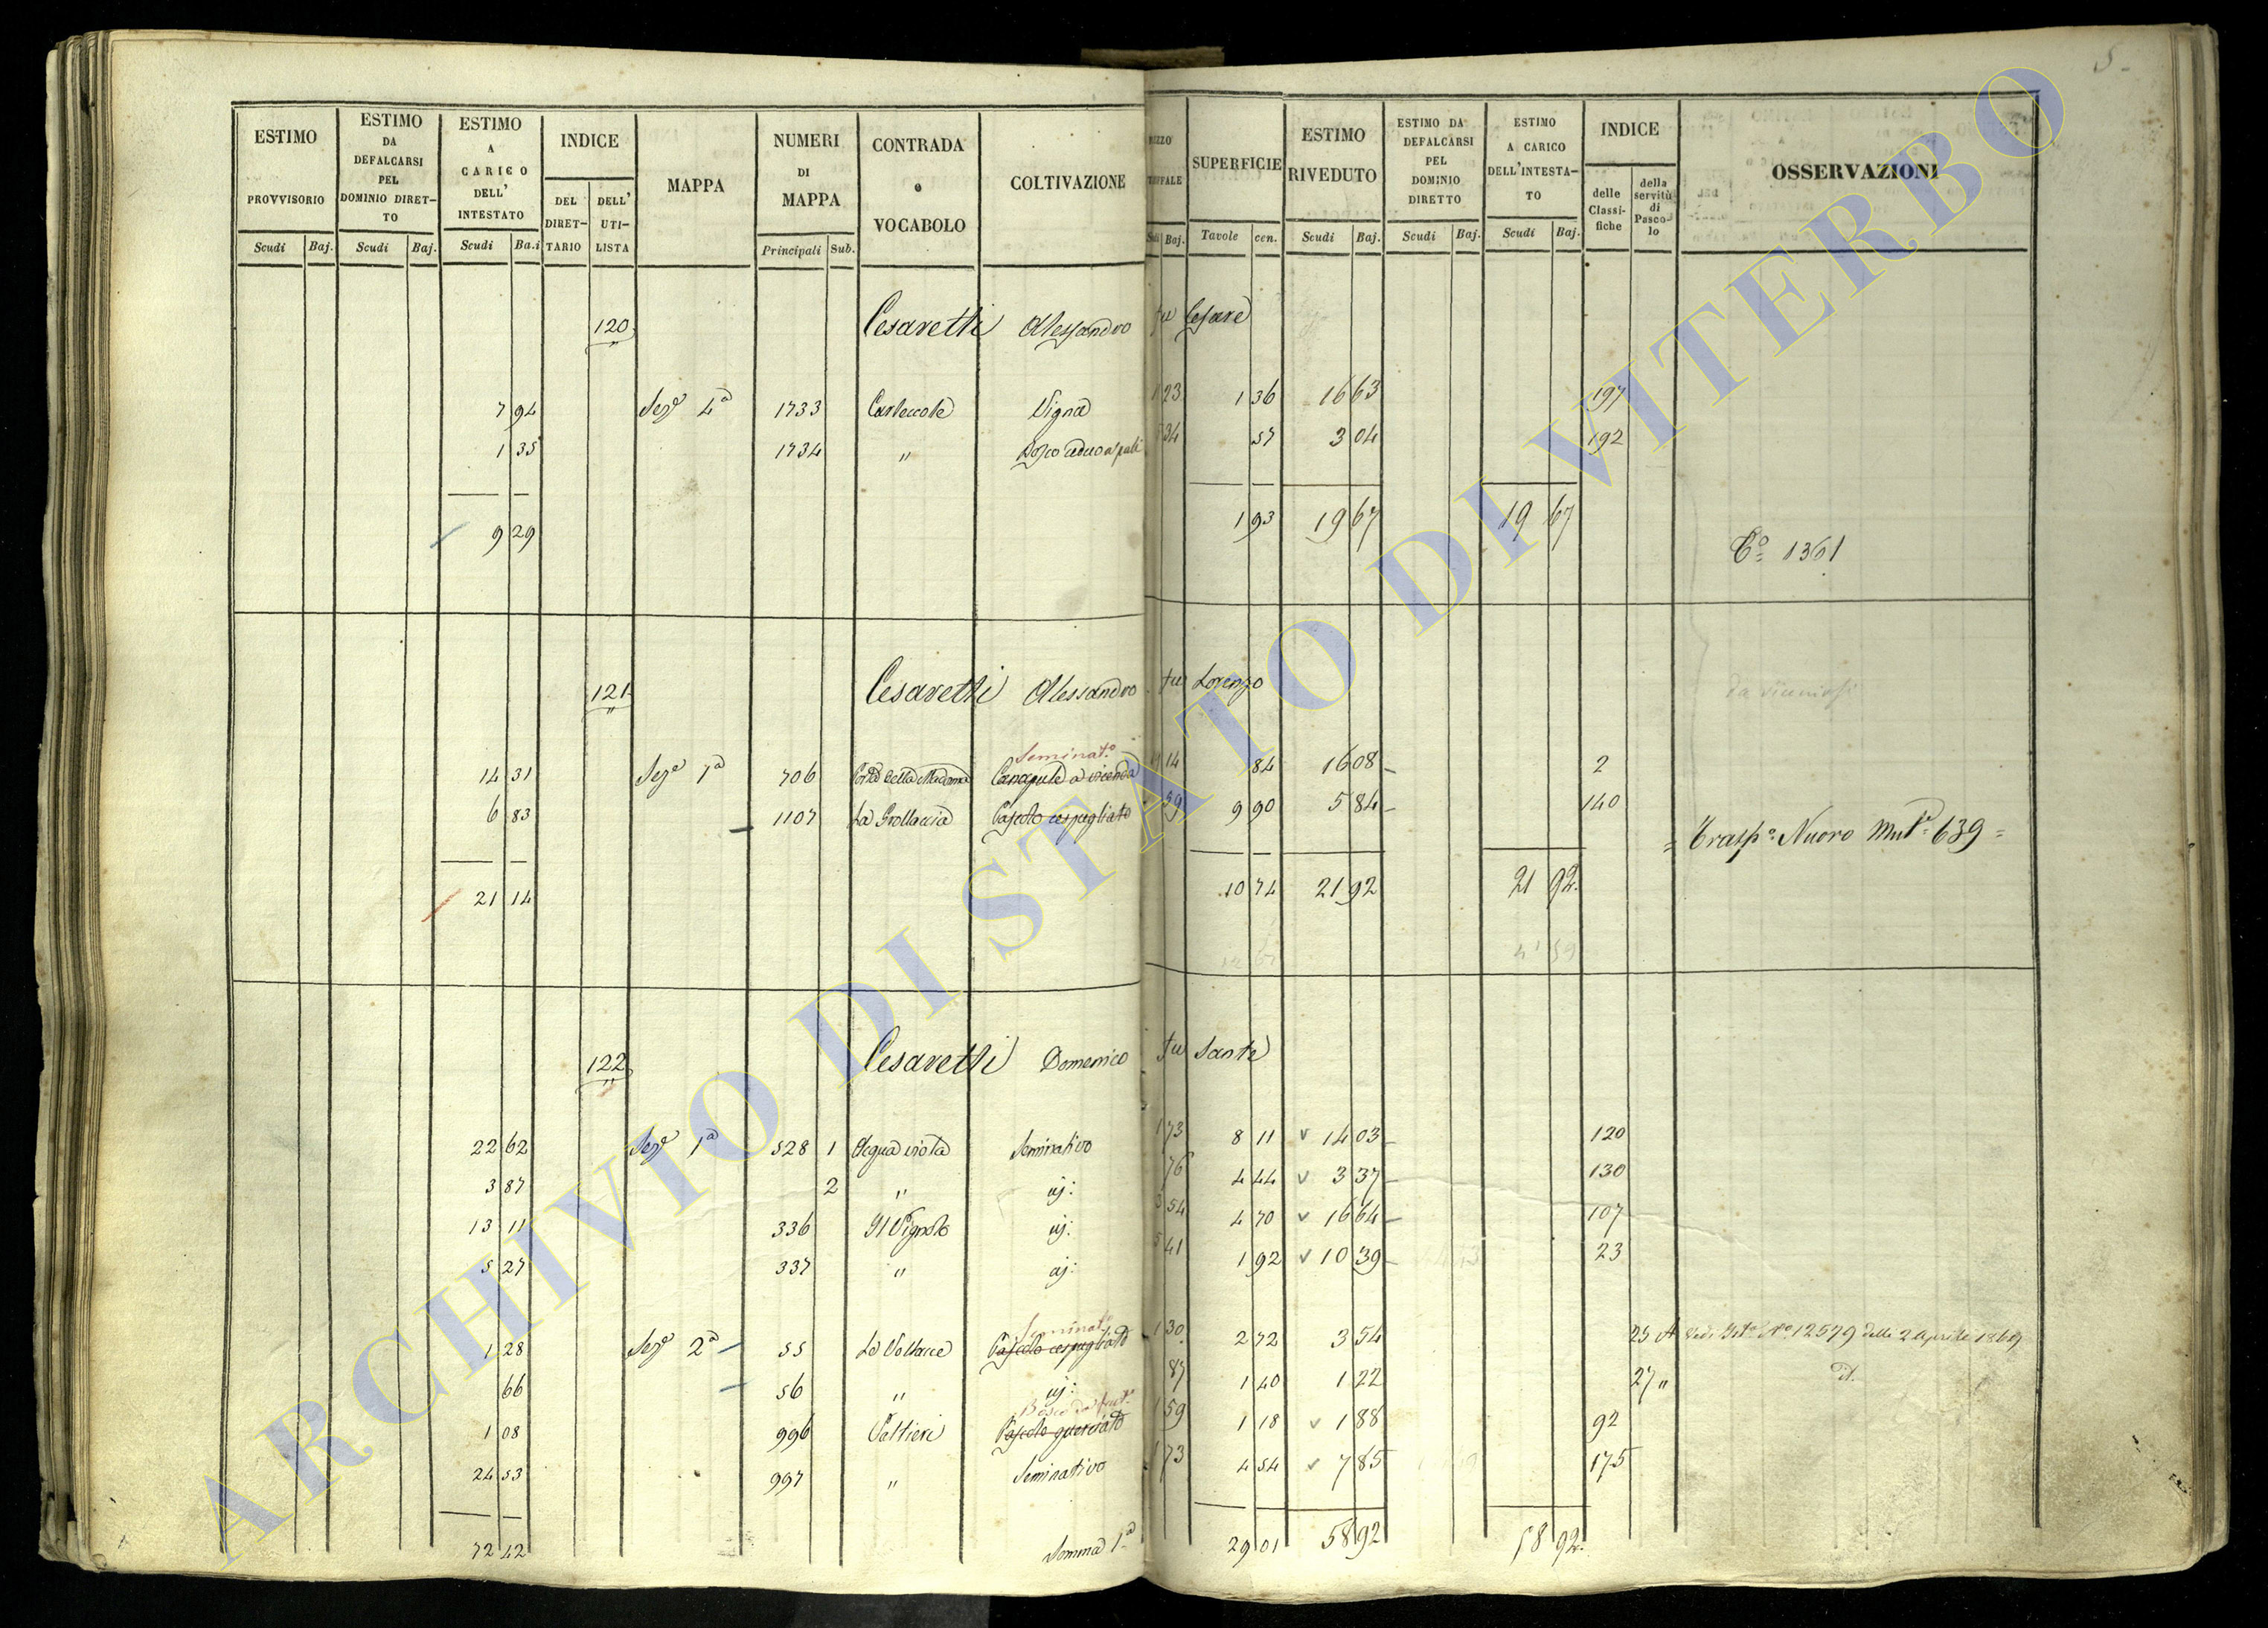 5
ESTIMO PROVVISORIO Scudi Baj.
ESTIMO DA DEFALCARSI PEL DOMINIO DIRETTO Scudi Baj.
ESTIMO A CARICO DELL' INTESTATO Scudi Ba.i
INDICE DEL DIRETTARIO DELL' UTILISTA
MAPPA
NUMERI DI MAPPA Principali Sub.
CONTRADA o VOCABOLO
COLTIVAZIONE
Baj.
SUPERFICIE Tavole cen.
ESTIMO RIVEDUTO Scudi Baj.
ESTIMO DA DEFALCARSI PEL DOMINIO DIRETTO Scudi Baj.
ESTIMO A CARICO DELL'INTESTATO Scudi Baj.
INDICE delle Classifiche della servitù di Pascolo
OSSERVAZIONI
120 Cesaretti Alessandro fu Cesare
7 94 Sez.e 4a 1733 Vigna 1 23 1 36 16 63 197
1 35 1734 " Bosco ceduo a pali 34 57 3 04 192
9 29 1 93 19 67 19 67
1361
121 Cesaretti Alessandro fu Lorenzo
Seminat.o
14 31 Sez.e 1a 706 Porta della Madonna Canapule a vicenda 14 84 16 08 2
6 83 1107 La Grottaccia Pascolo cespugliato 59 9 90 5 84 140
= Trasp.o Nuovo Mut.a 639 =
21 14 10 74 21 92 21 92
122 Cesaretti Domenico fu Sante
22 62 Sez.e 1a 528 1 Acqua viola Seminativo 1 73 8 11 14 03 120
3 87 2 " id: 76 4 44 3 37 130
13 11 336 Il Vignolo id: 3 54 4 70 16 64 107
5 27 337 " id: 5 41 1 92 10 39 23
Seminat.o
1 28 Sez.e 2a 55 Le Voltacce Pascolo cespugliato 1 30 2 72 3 54 25 A Vedi N.o 12579 delli 2 Aprile 1869
66 56 " id: 87 1 40 1 22 27 " d.
Bosco da frut.o
1 08 996 Valtieri Pascolo querciato 1 59 1 18 1 88 92
24 53 997 " Seminativo 1 73 4 54 7 85 175
72 42 Somma 1a 29 01 58 92 58 92
ARCHIVIO DI STATO DI VITERBO